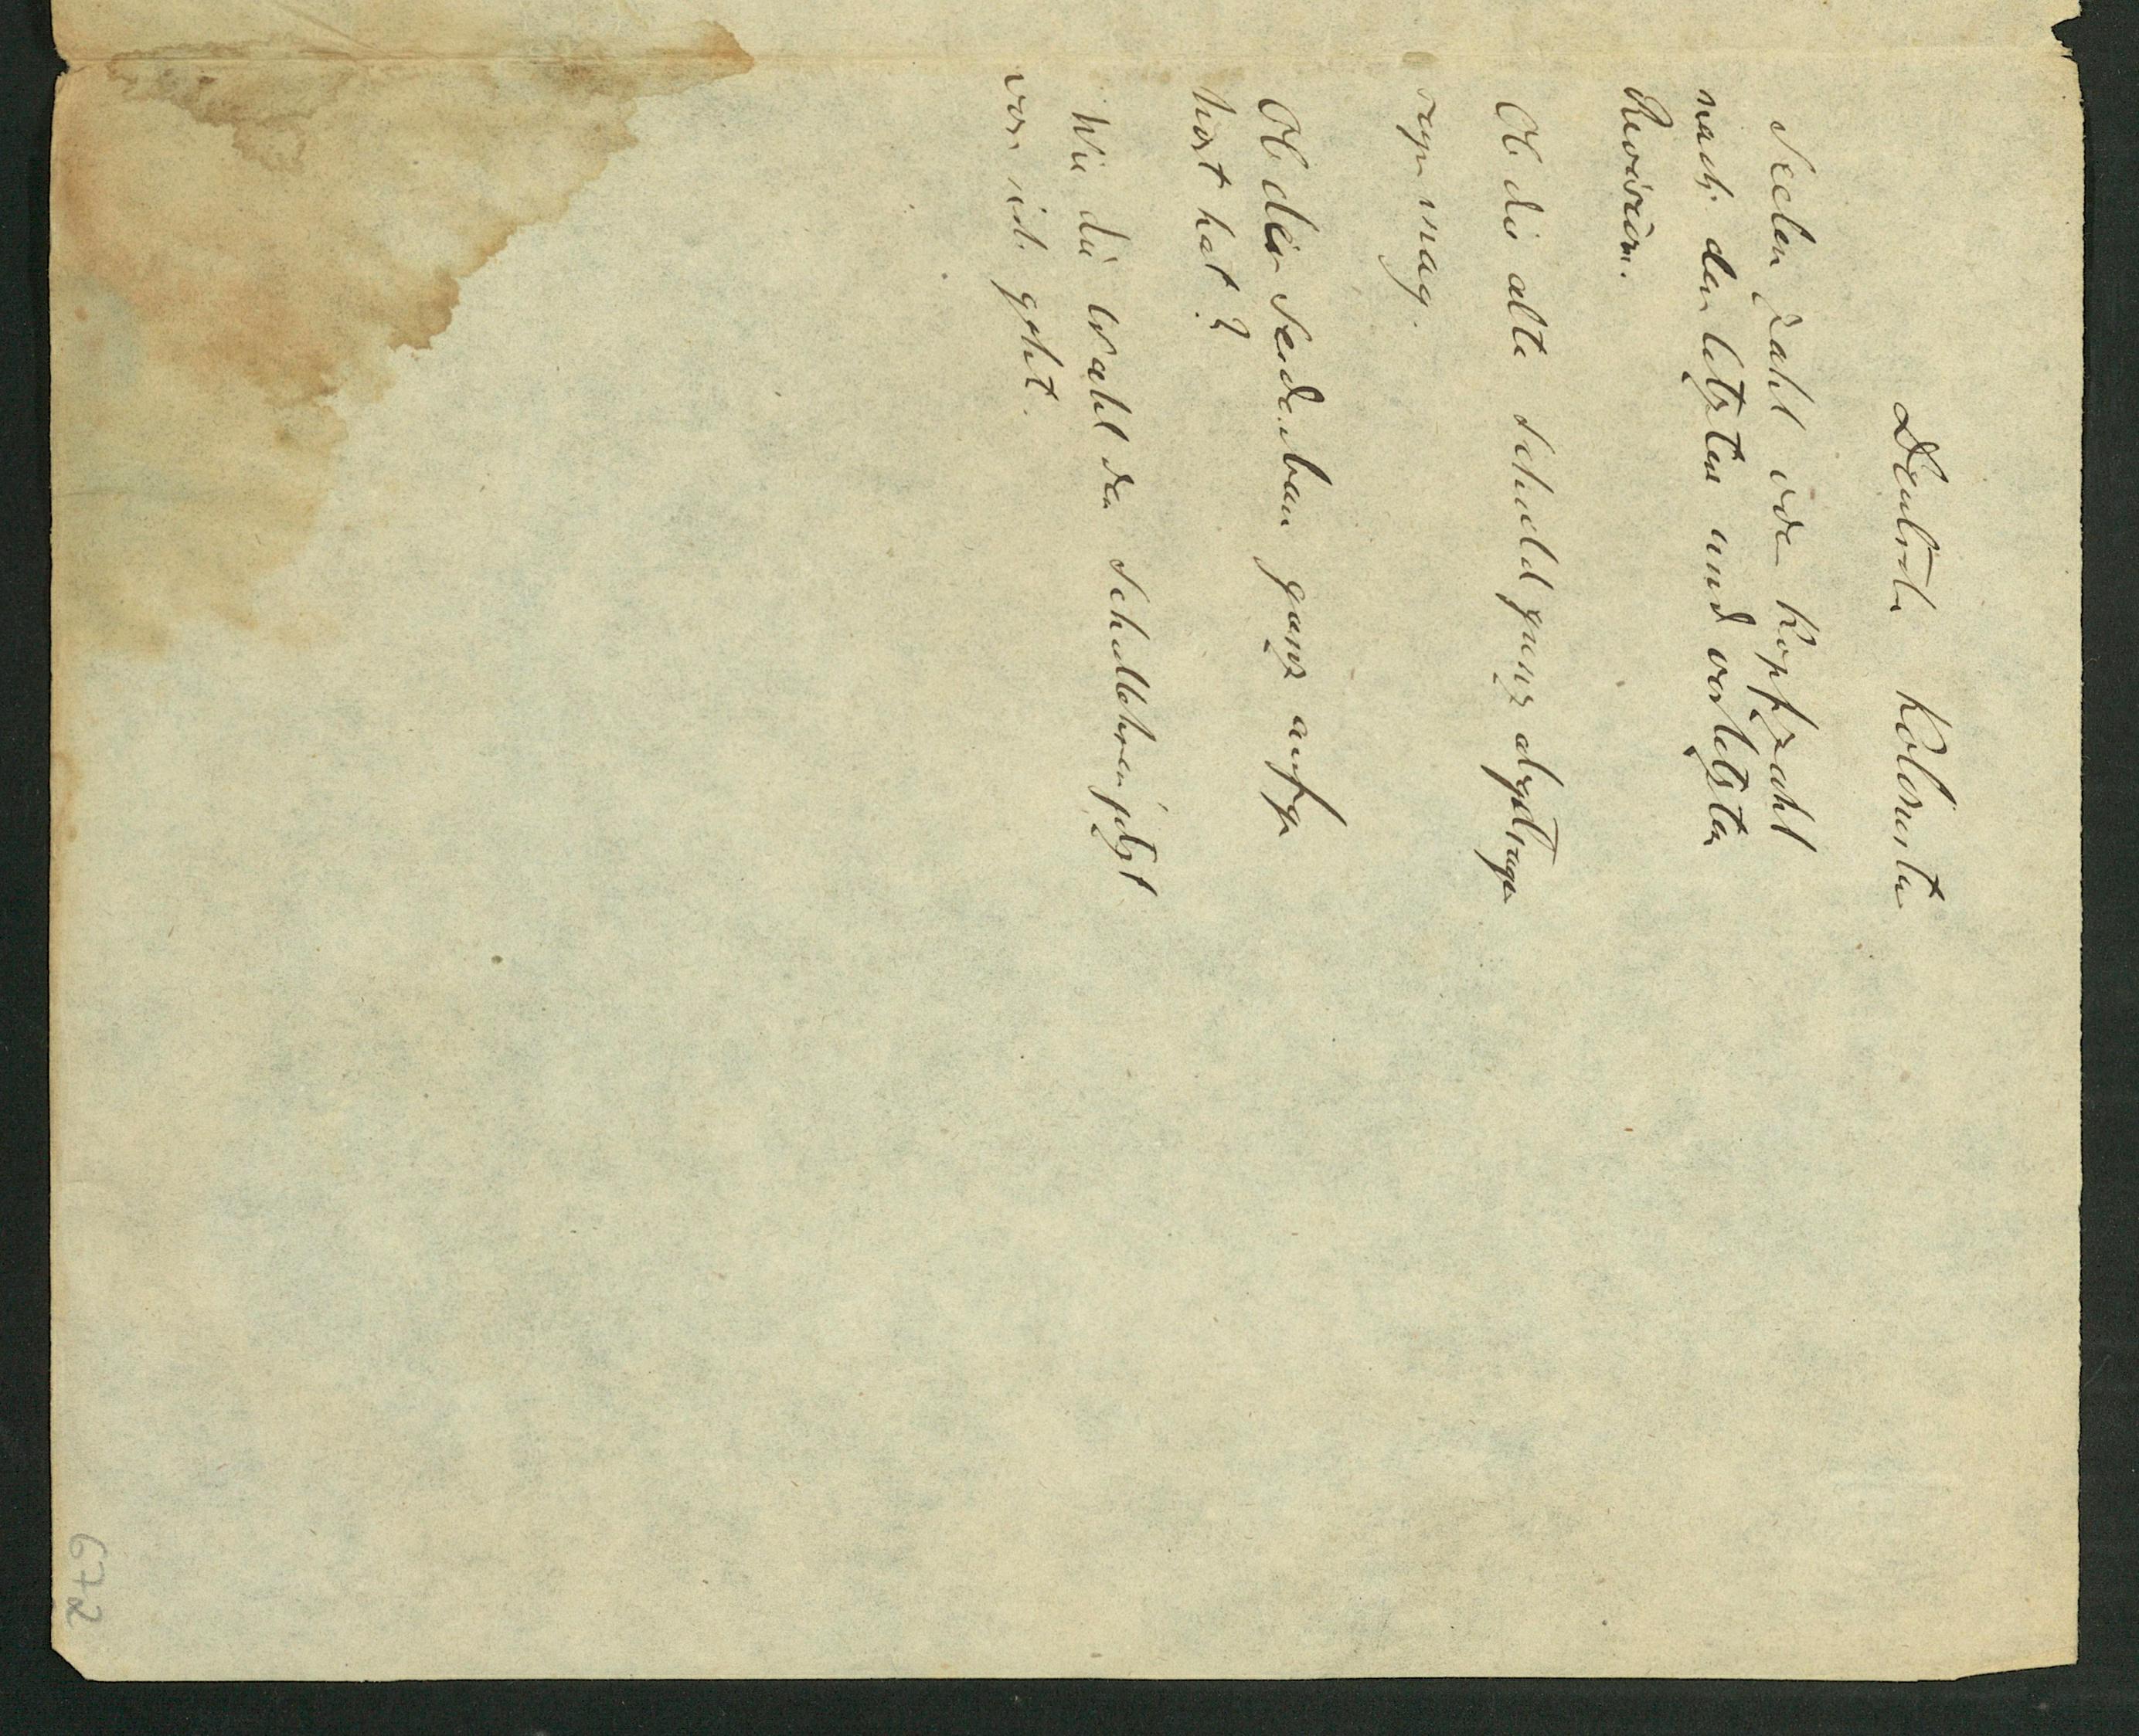 Deutsche Kolonisten
Seelen Zahl oder Kopfzahl
nach der letzten und vorletzten
Revision.
Ob die alte Schuld ganz abgetragen
mag.
Ob der Seidenbau ganz aufge
hört hat?
Wie die Wahl der Schullehrer jetzt
vor sich geht.
672